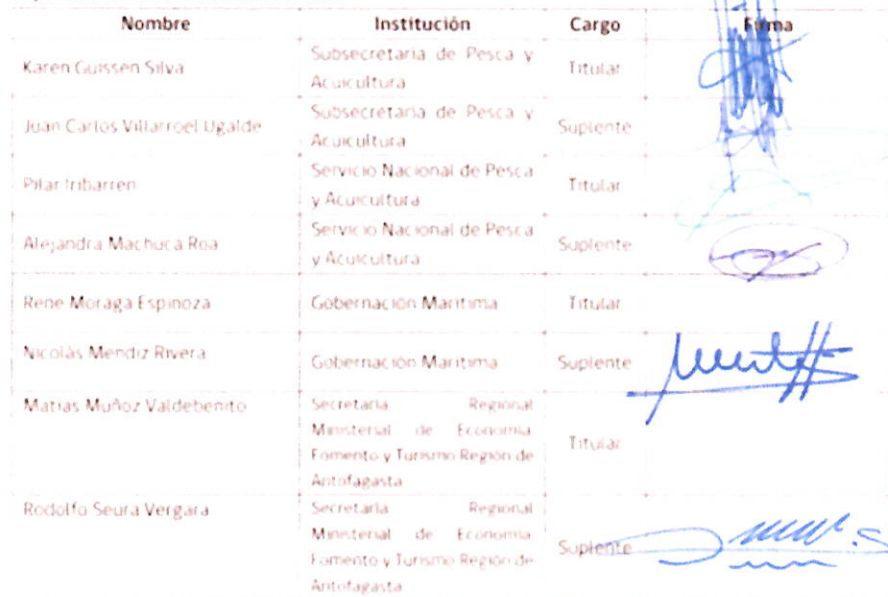 Nombre Institución Cargo Firma
Karen Guissen Silva
Subsecretaria de Pesca y
Acuicultura
Titular
Juan Carlos Villarroel Ugalde
Subsecretaria de Pesca y
Acuicultura
Suplente
Pilar Iribarren
Servicio Nacional de Pesca
y Acuicultura
Titular
Alejandra Machuca Roa
Servicio Nacional de Pesca
y Acuicultura
Suplente
Rene Moraga Espinoza
Gobernación Maritima
Titular
Nicolás Mendiz Rivera
Gobernación Maritima
Suplente
Matias Muñoz Valdebenito
Secretaria Regional
Ministerial de Economia
Fomento y Turismo Región de
Antofagasta
Titular
Rodolfo Seura Vergara
Secretaria Regional
Ministerial de Economia
Fomento y Turismo Región de
Antofagasta
Suplente